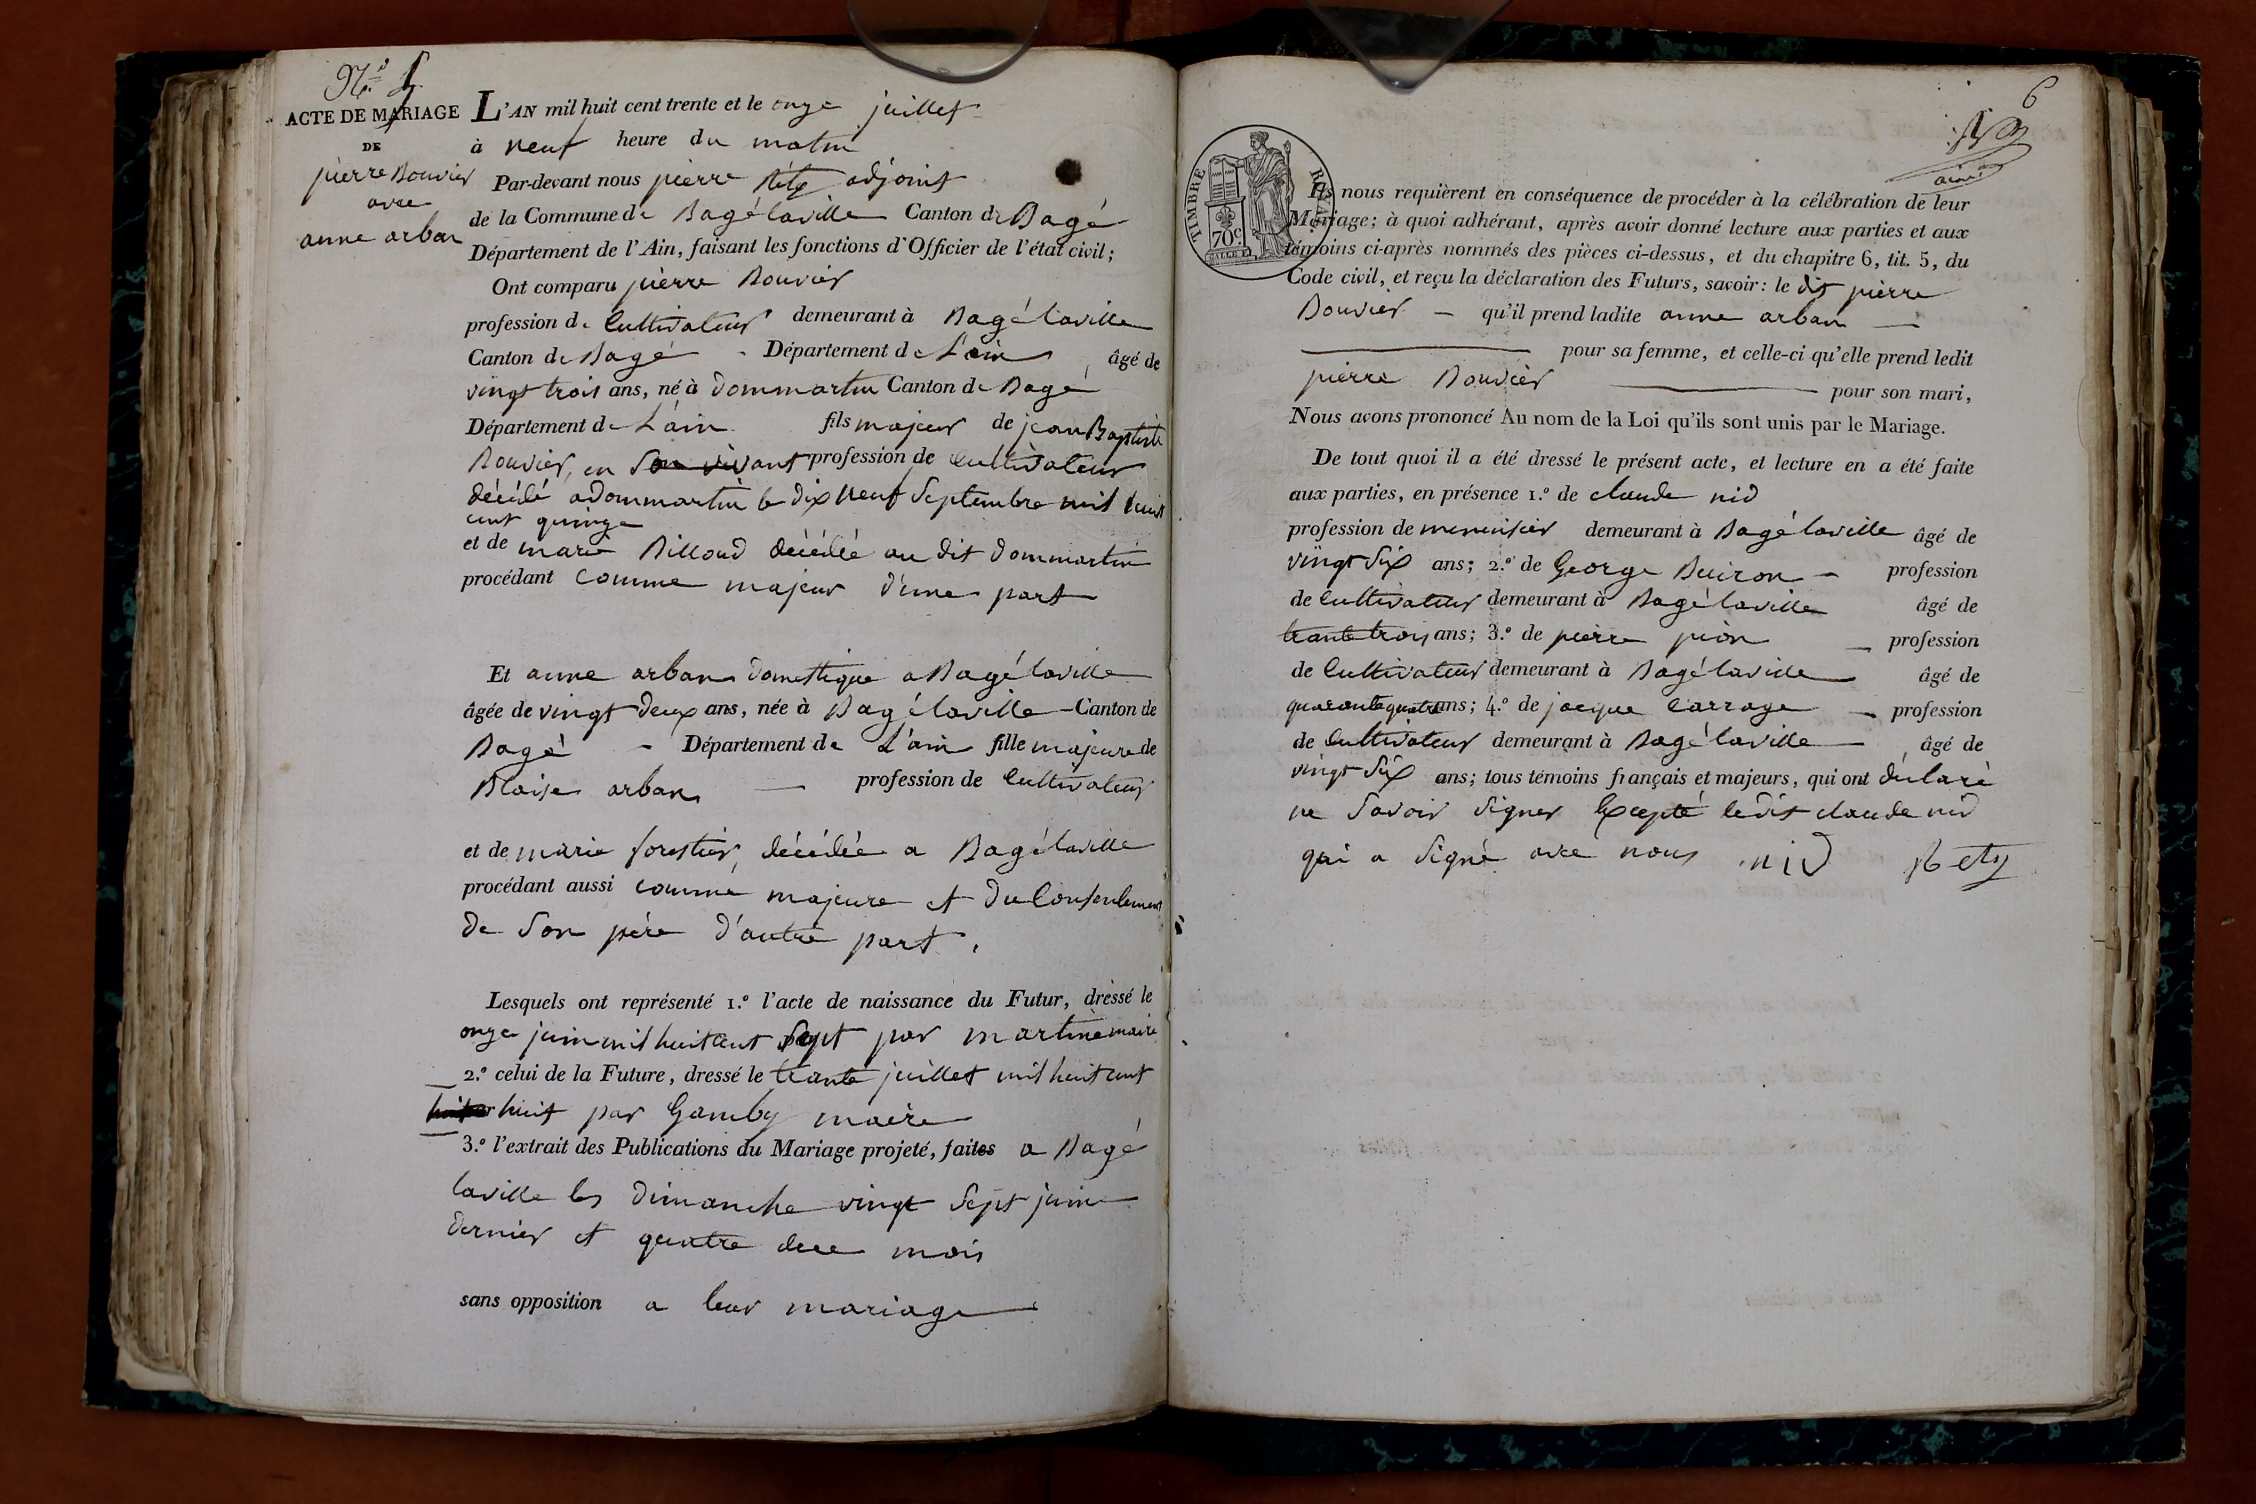 N.° 5
ACTE DE MARIAGE
DE
pierre Bouvier
avec
anne arban
L'AN mil huit cent trente et le onze juillet
à neuf heure du matin
Par-devant nous pierre Réty adjoint
de la Commune de Bagélaville Canton de Bagé
Département de l'Ain, faisant les fonctions d'Officier de l'état civil;
Ont comparu pierre Bouvier
profession de Cultivateur demeurant à Bagélaville
Canton de Bagé - Département de L'ain âgé de
vingt trois ans, né à dommartin Canton de Bagé
Département de L'ain fils majeur de jean Baptiste
Bouvier, en son vivant profession de Cultivateur
décédé a dommartin le dix neuf Septembre mil huit
cent quinze
et de marie Billoud décédée au dit dommartin
procédant comme majeur d'une part
Et anne arban domestique a Bagélaville
âgée de vingt deux ans, née à Bagélaville - Canton de
Bagé - Département de L'ain fille majeure de
Blaise arban — profession de Cultivateur
et de marie forestier, décédée a Bagélaville
procédant aussi comme majeure et du Consentement
de Son père d'autre part,
Lesquels ont représenté 1.° l'acte de naissance du Futur, dressé le
onze juin mil huit cent sept par martine maire
2.° celui de la Future, dressé le trante juillet mil huit cent
huit par Gamby maire
3.° l'extrait des Publications du Mariage projeté, faites a Bagé
laville les dimanche vingt Sept juin
dernier et quatre du mois
sans opposition a leur mariage
6
TIMBRE ROYAL
70c
Ils nous requièrent en conséquence de procéder à la célébration de leur
Mariage; à quoi adhérant, après avoir donné lecture aux parties et aux
témoins ci-après nommés des pièces ci-dessus, et du chapitre 6, tit. 5, du
Code civil, et reçu la déclaration des Futurs, savoir: le dit pierre
Bouvier — qu'il prend ladite anne arban —
pour sa femme, et celle-ci qu'elle prend ledit
pierre Bouvier — pour son mari,
Nous avons prononcé Au nom de la Loi qu'ils sont unis par le Mariage.
De tout quoi il a été dressé le présent acte, et lecture en a été faite
aux parties, en présence 1.° de claude nid
profession de menuisier demeurant à Bagélaville âgé de
vingt Six ans; 2.° de George Buiron — profession
de Cultivateur demeurant à Bagélaville âgé de
trante trois ans; 3.° de pierre pion — profession
de Cultivateur demeurant à Bagélaville âgé de
quarante quatre ans; 4.° de jacque Carrage — profession
de Cultivateur demeurant à Bagélaville — âgé de
vingt Six ans; tous témoins français et majeurs, qui ont déclaré
ne Savoir Signer Excepté ledit claude nid
qui a Signé avec nous nid Réty